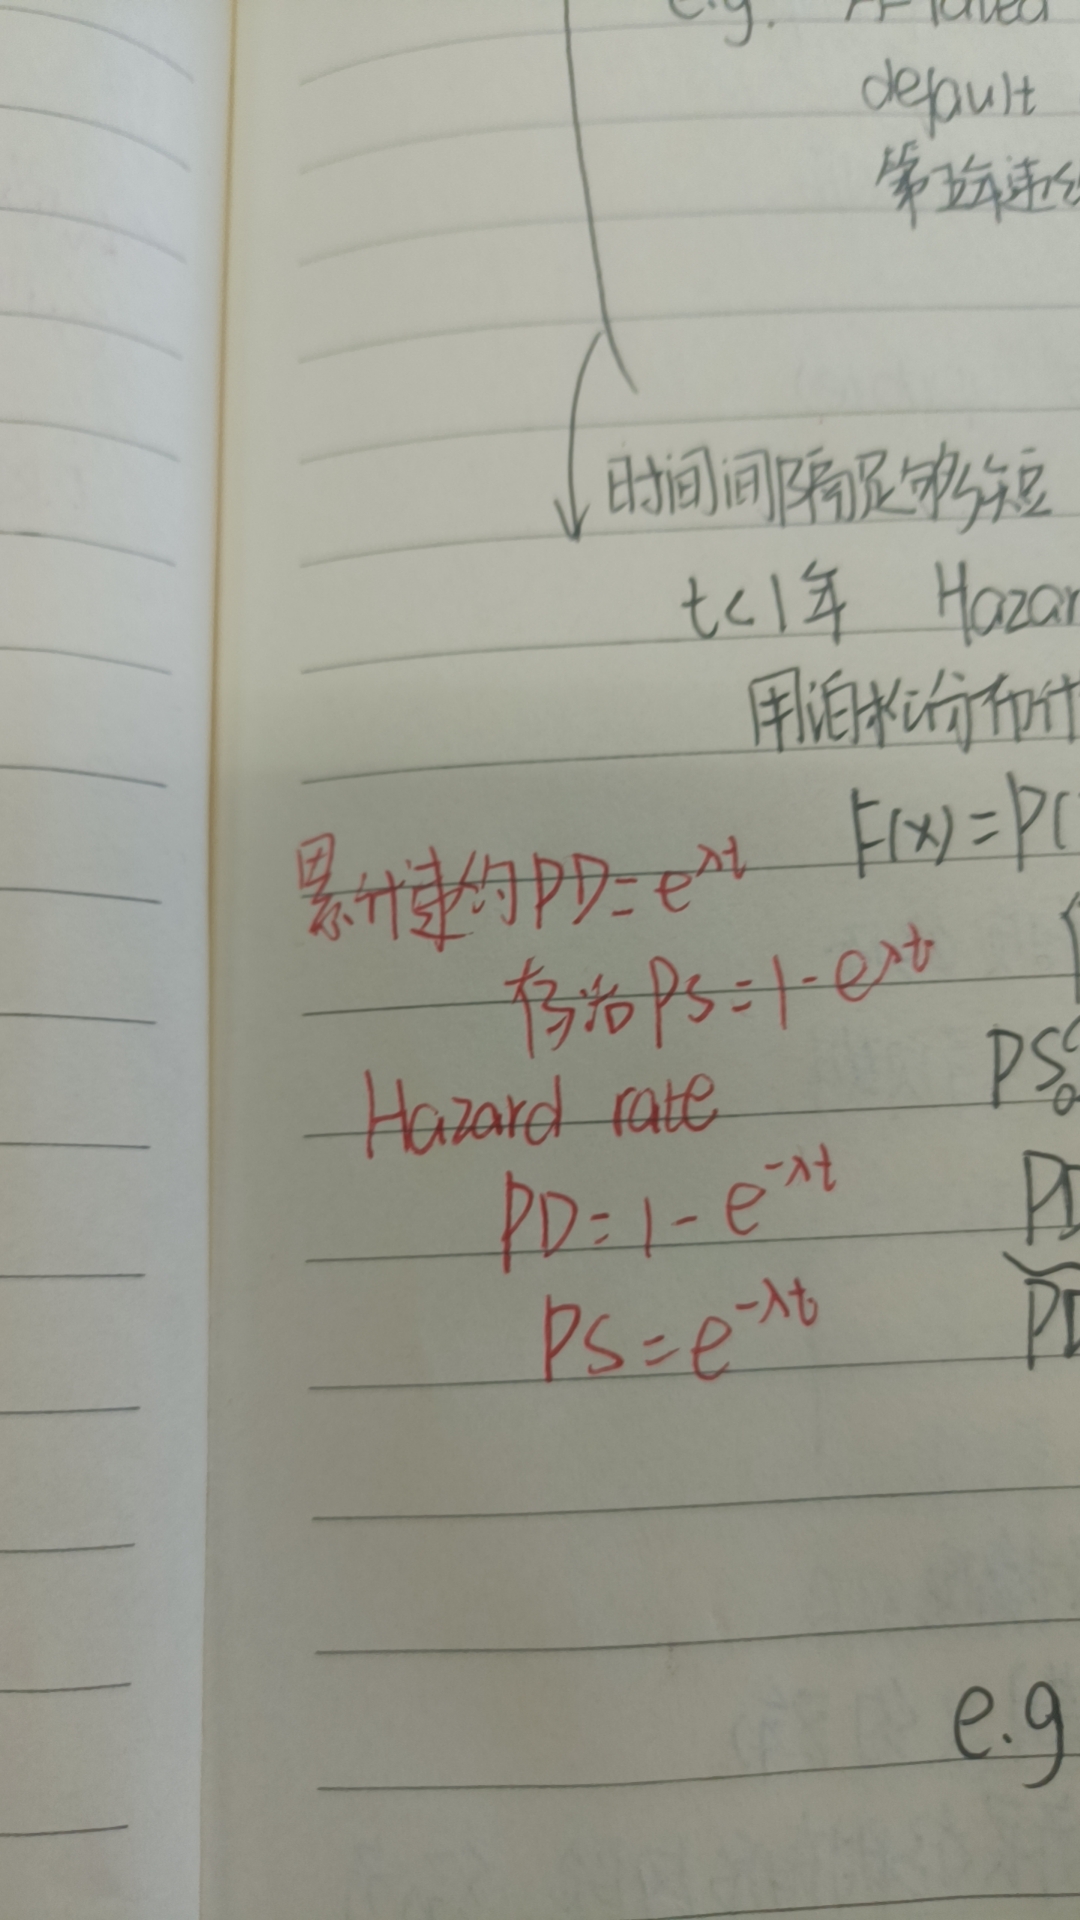 e.g.
default
第五年违约
时间间隔足够短
t<1年 Hazar
用泊松分布计
F(x)=P(
累计违约PD=e^λt
存活PS=1-e^λt
PS
Hazard rate
PD=1-e^-λt
PD
PS=e^-λt
PD
e.g